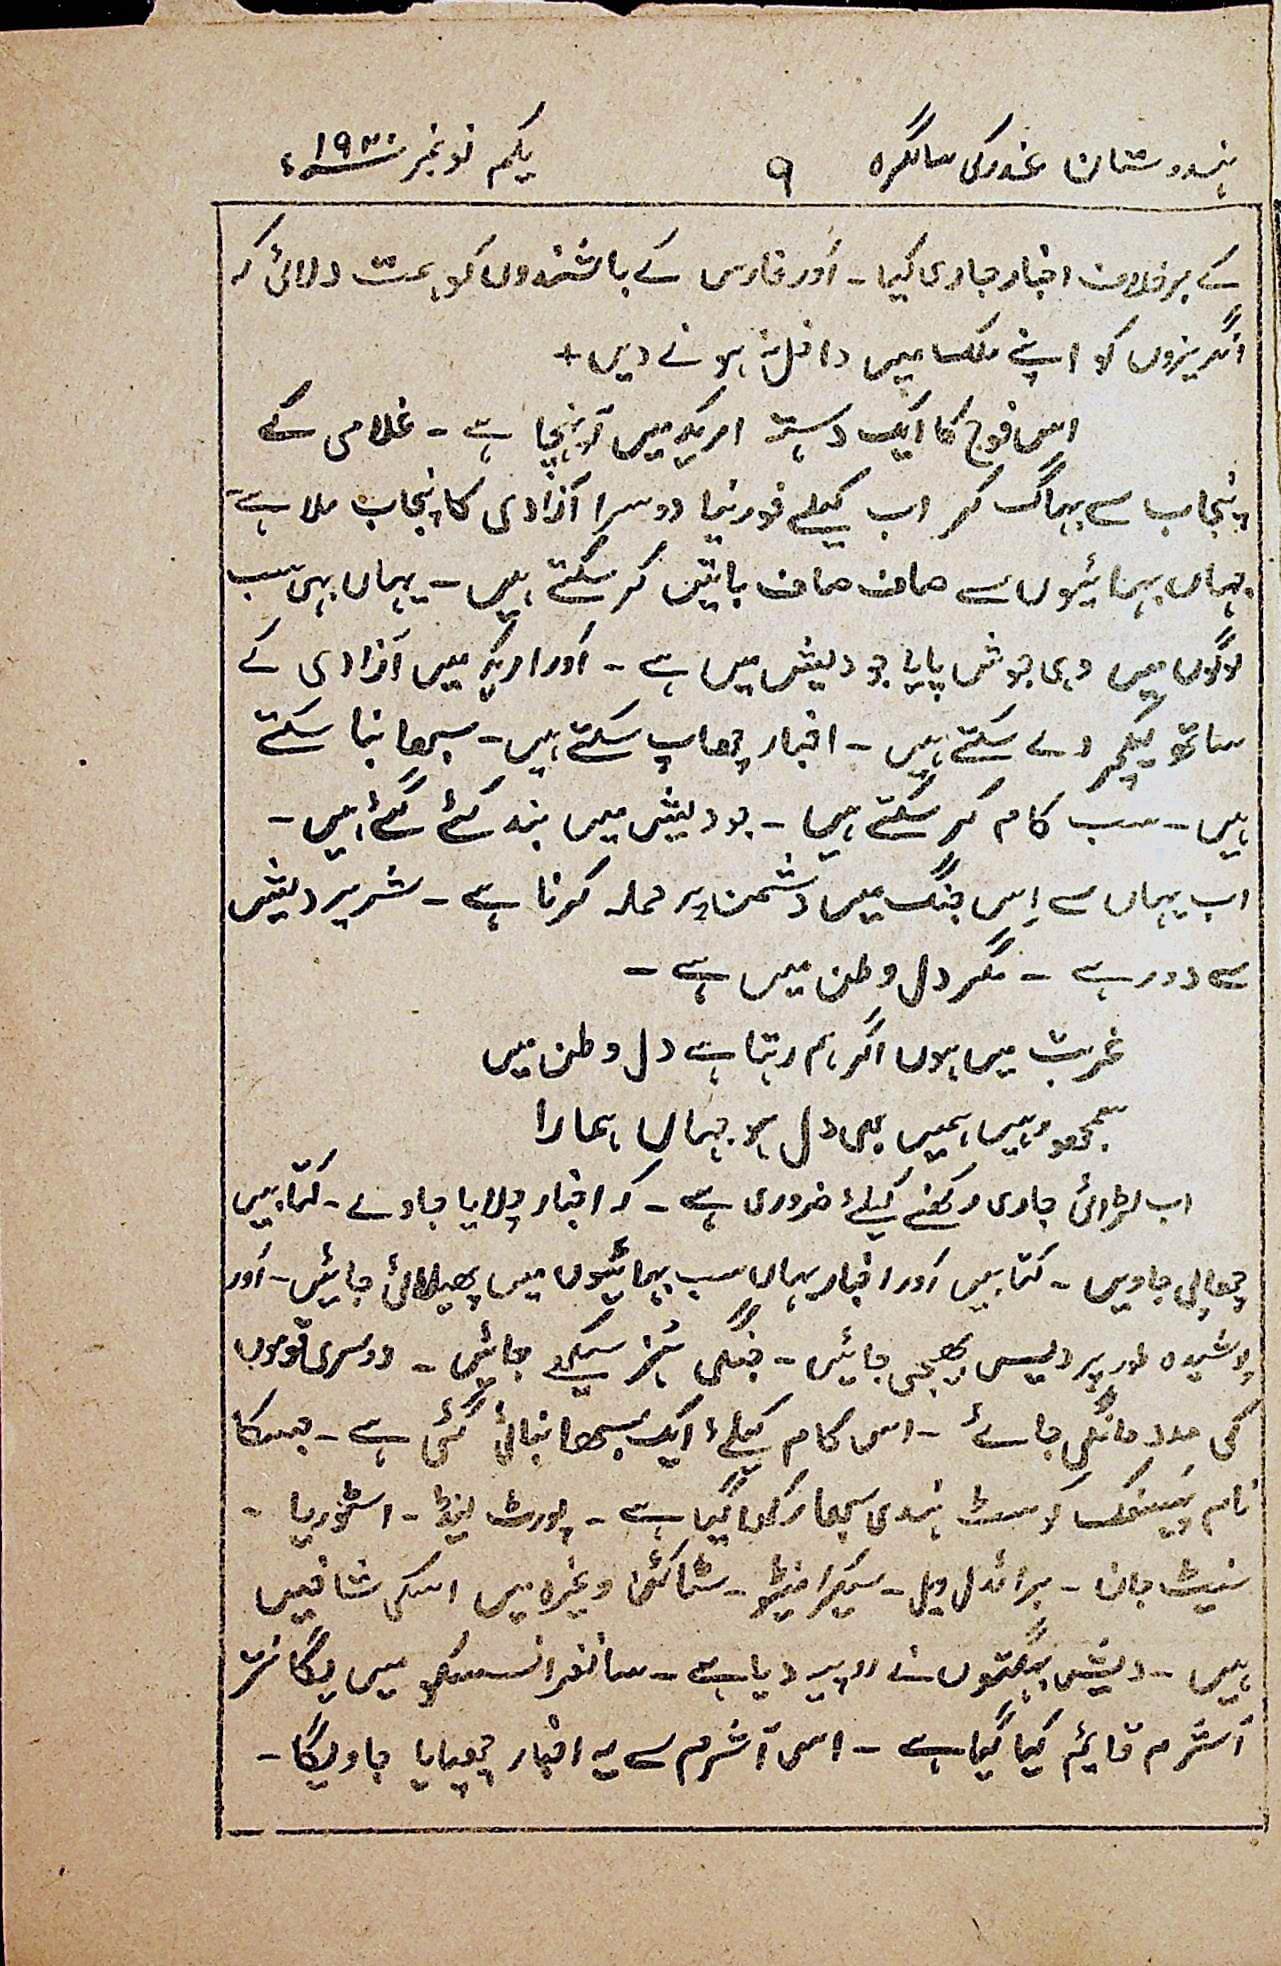 ہندوستان غدر کی سالگرہ ۹ یکم نومبر ۱۹۳۰ء
کے برخلاف اخبار جاری کیا ۔ اَور فارس کے باشندوں کو ہمت دلائی کہ
انگریزوں کو اپنے ملک میں داخل نہ ہونے دیں +
اس فوج کا ایک دستہ امریکہ میں آ پہنچا ہے ۔ غلامی کے
پنجاب سے بہاگ کر اب کیلے فورنیا دوسرا آزادی کا پنجاب ملا ہے ۔
جہاں بہائیوں سے صاف صاف باتیں کر سکتے ہیں ۔ یہاں بہی سب
لوگوں میں وہی جوش پایا جو دیش میں ہے ۔ اَور امریکہ میں آزادی کے
ساتھ لیکچر دے سکتے ہیں ۔ اخبار چھاپ سکتے ہیں ۔ سبھا بنا سکتے
ہیں ۔ سب کام کر سکتے ہیں ۔ جو دیش میں بند کئے گئے ہیں ۔
اب یہاں سے اِس جنگ میں دشمن پر حملہ کرنا ہے ۔ شریر دیش
سے دور ہے ۔ مگر دل وطن میں ہے ۔
غربت میں ہوں اگر ہم رہتا ہے دل وطن میں
سمجھو وہیں ہمیں بھی دل ہو جہاں ہمارا
اب لڑائی جاری رکھنے کیلئے ضروری ہے ۔ کہ اخبار چلایا جاوے ۔ کتابیں
چھاپی جاویں ۔ کتابیں اَور اخبار یہاں سب بہائیوں میں پھیلائی جائیں ۔ اَور
پوشیدہ طور پر دیس بھیجی جائیں ۔ جنگی ہنر سیکھے جائیں ۔ دوسری قوموں
کی مدد مانگی جائے ۔ اس کام کیلئے ایک سبھا بنائی گئی ہے ۔ جسکا
نام پیسفک کوسٹ ہندی سبھا رکھا گیا ہے ۔ پورٹ لینڈ ۔ اسٹوریا ۔
سنیٹ جان ۔ برائڈل ویل ۔ سیکرامنیٹو ۔ سٹاکٹن وغیرہ میں اسکی شاخیں
ہیں ۔ دیش بہگتوں نے روپیہ دیا ہے ۔ سانفرانسسکو میں یگانتر
آشرم قایٔم کیا گیا ہے ۔ اسی آشرم سے یہ اخبار چھپایا جاویگا ۔